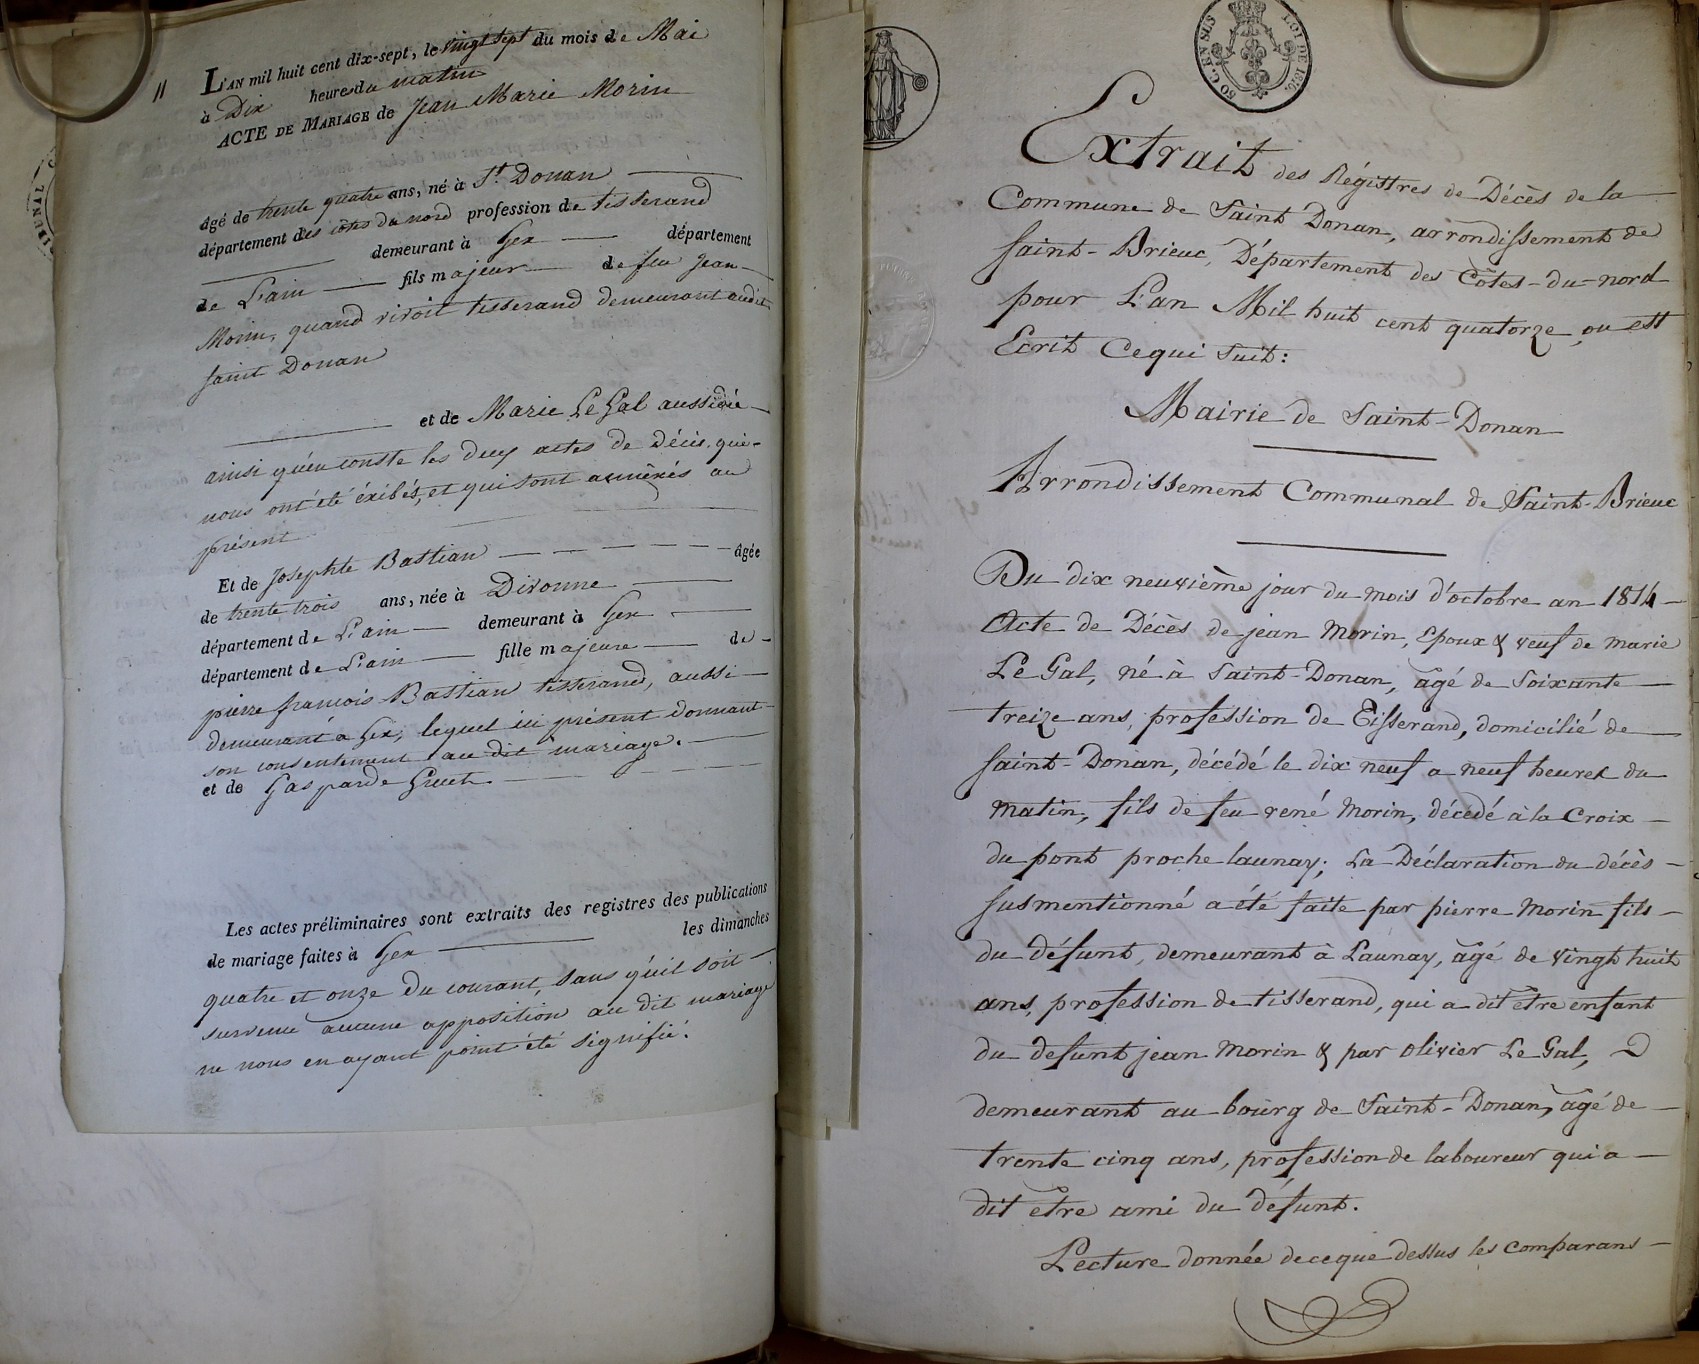 11
L'AN mil huit cent dix-sept, le vingt sept du mois de Mai
à Dix heures du matin
ACTE DE MARIAGE de Jean Marie Morin
âgé de trente quatre ans, né à St. Donan
département des côtes du nord profession de tisserand
demeurant à Gex département
de L'ain fils majeur de feu Jean
Morin, quand vivoit tisserand demeurant audit
saint Donan
et de Marie Le Gal aussi
ainsi qu'en conste les deux actes de décès, qui
nous ont été éxibés, et qui sont annéxés au
présent
Et de Josephte Bastian âgée
de trente trois ans, née à Divonne
département de L'ain demeurant à Gex
département de L'ain fille majeure de
pierre francois Bastian tisserand, aussi
demeurant à Gex, lequel ici présent donnant
son consentement au dit mariage.
et de Gasparde Gruet
Les actes préliminaires sont extraits des registres des publications
de mariage faites à Gex les dimanches
quatre et onze du courant, sans qu'il soit
survenu aucune opposition au dit mariage
ne nous en ayant point été signifié.
SOC. EN SUS
LOI DE 1816.
Extrait des Régistres de Décès de la
Commune de Saint Donan, arrondissement de
saint-Brieuc, Département des Côtes-du-nord
pour L'an Mil huit cent quatorze, ou est
Ecrit Cequi Suit:
Mairie de Saint-Donan
Arrondissement Communal de Saint-Brieuc
Du dix neuvième jour du mois d'octobre an 1814
Acte de Décès de jean Morin, Epoux & veuf de marie
Le Gal, né à Saint-Donan, agé de Soixante
treize ans, profession de Tisserand, domicilié de
saint-Donan, décédé le dix neuf a neuf heures du
matin, fils de feu rené Morin, décédé à la Croix
du pont proche launay; La Déclaration du décès
susmentionné a été faite par pierre Morin fils
du défunt, demeurant à Launay, agé de vingt huit
ans, profession de tisserand, qui a dit être enfant
du defunt jean Morin & par olivier Le Gal,
demeurant au bourg de Saint-Donan, agé de
trente cinq ans, profession de laboureur qui a
dit etre ami du défunt.
Lecture donnée deceque dessus les comparans